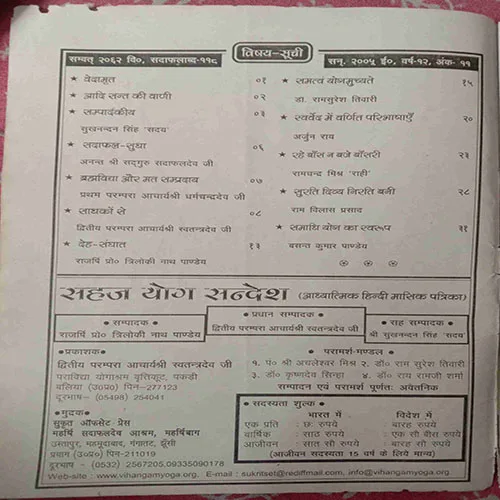 विषय-सूची
सम्वत् २०६२ वि०, सदाफलाब्द-११८
सन् २००५ ई०, वर्ष-१२, अंक- ११
★ वेदामृत ०१
★ आदि सन्त की वाणी ०२
★ सम्पादकीय ०३
सुखनन्दन सिंह 'सदय'
★ सदाफल-सुधा ०६
अनन्त श्री सद्गुरु सदाफलदेव जी
★ ब्रह्मविद्या और मत सम्प्रदाय ०७
प्रथम परम्परा आचार्यश्री धर्मचन्द्रदेव जी
★ साधकों से ०८
द्वितीय परम्परा आचार्यश्री स्वतन्त्रदेव जी
★ देह-संघात १३
राजर्षि प्रो० त्रिलोकी नाथ पाण्डेय
★ समत्वं योगमुच्यते १५
डा. रामसुरेश तिवारी
★ स्वर्वेद में वर्णित परिभाषाएँ २०
अर्जुन राय
★ रहे बाँस न बजे बाँसरी २३
रामचन्द्र मिश्र 'राही'
★ सुरति दिव्य निरति बनी २८
राम विलास प्रसाद
★ समाधि योग का स्वरूप ३१
बसन्त कुमार पाण्डेय
सहज योग सन्देश (आध्यात्मिक हिन्दी मासिक पत्रिका)
● सम्पादक ●
राजर्षि प्रो० त्रिलोकी नाथ पाण्डेय
● प्रधान सम्पादक ●
द्वितीय परम्परा आचार्यश्री स्वतन्त्रदेव जी
● सह सम्पादक ●
श्री सुखनन्दन सिंह 'सदय'
●प्रकाशक●
द्वितीय परम्परा आचार्यश्री स्वतन्त्रदेव जी
पराविद्या योगाश्रम वृत्तिकूट, पकड़ी
बलिया (उ०प्र०) पिन-277123
दूरभाष- (05498) 254041
●मुद्रक●
सुकृत ऑफसेट प्रेस
महर्षि सदाफलदेव आश्रम, महर्षिबाग
उस्तापुर, महमूदाबाद, गंगातट, झूँसी
प्रयाग (उ०प्र०) पिन-211019
दूरभाष - (0532) 2567205,09335090178
● परामर्श-मण्डल ●
१. पं० श्री अचलेस्तर मिश्र २. डॉ० राम सुरेश तिवारी
३. डॉ० कृष्णदेव सिन्हा ४. डॉ० राय रामजी शर्मा
सम्पादन एवं परामर्श पूर्णतः अवैतनिक
● सदस्यता शुल्क ●
भारत में विदेश में
एक प्रति : छः रुपये बारह रुपये
वार्षिक : साठ रुपये एक सौ बीस रुपये
आजीवन : सात सौ रुपये बारह सौ रुपये
(आजीवन सदस्यता 15 वर्ष के लिये मान्य)
Web-site : www.vihangamyoga.org, E-mail : sukritset@rediffmail.com, info@vihangamyoga.org